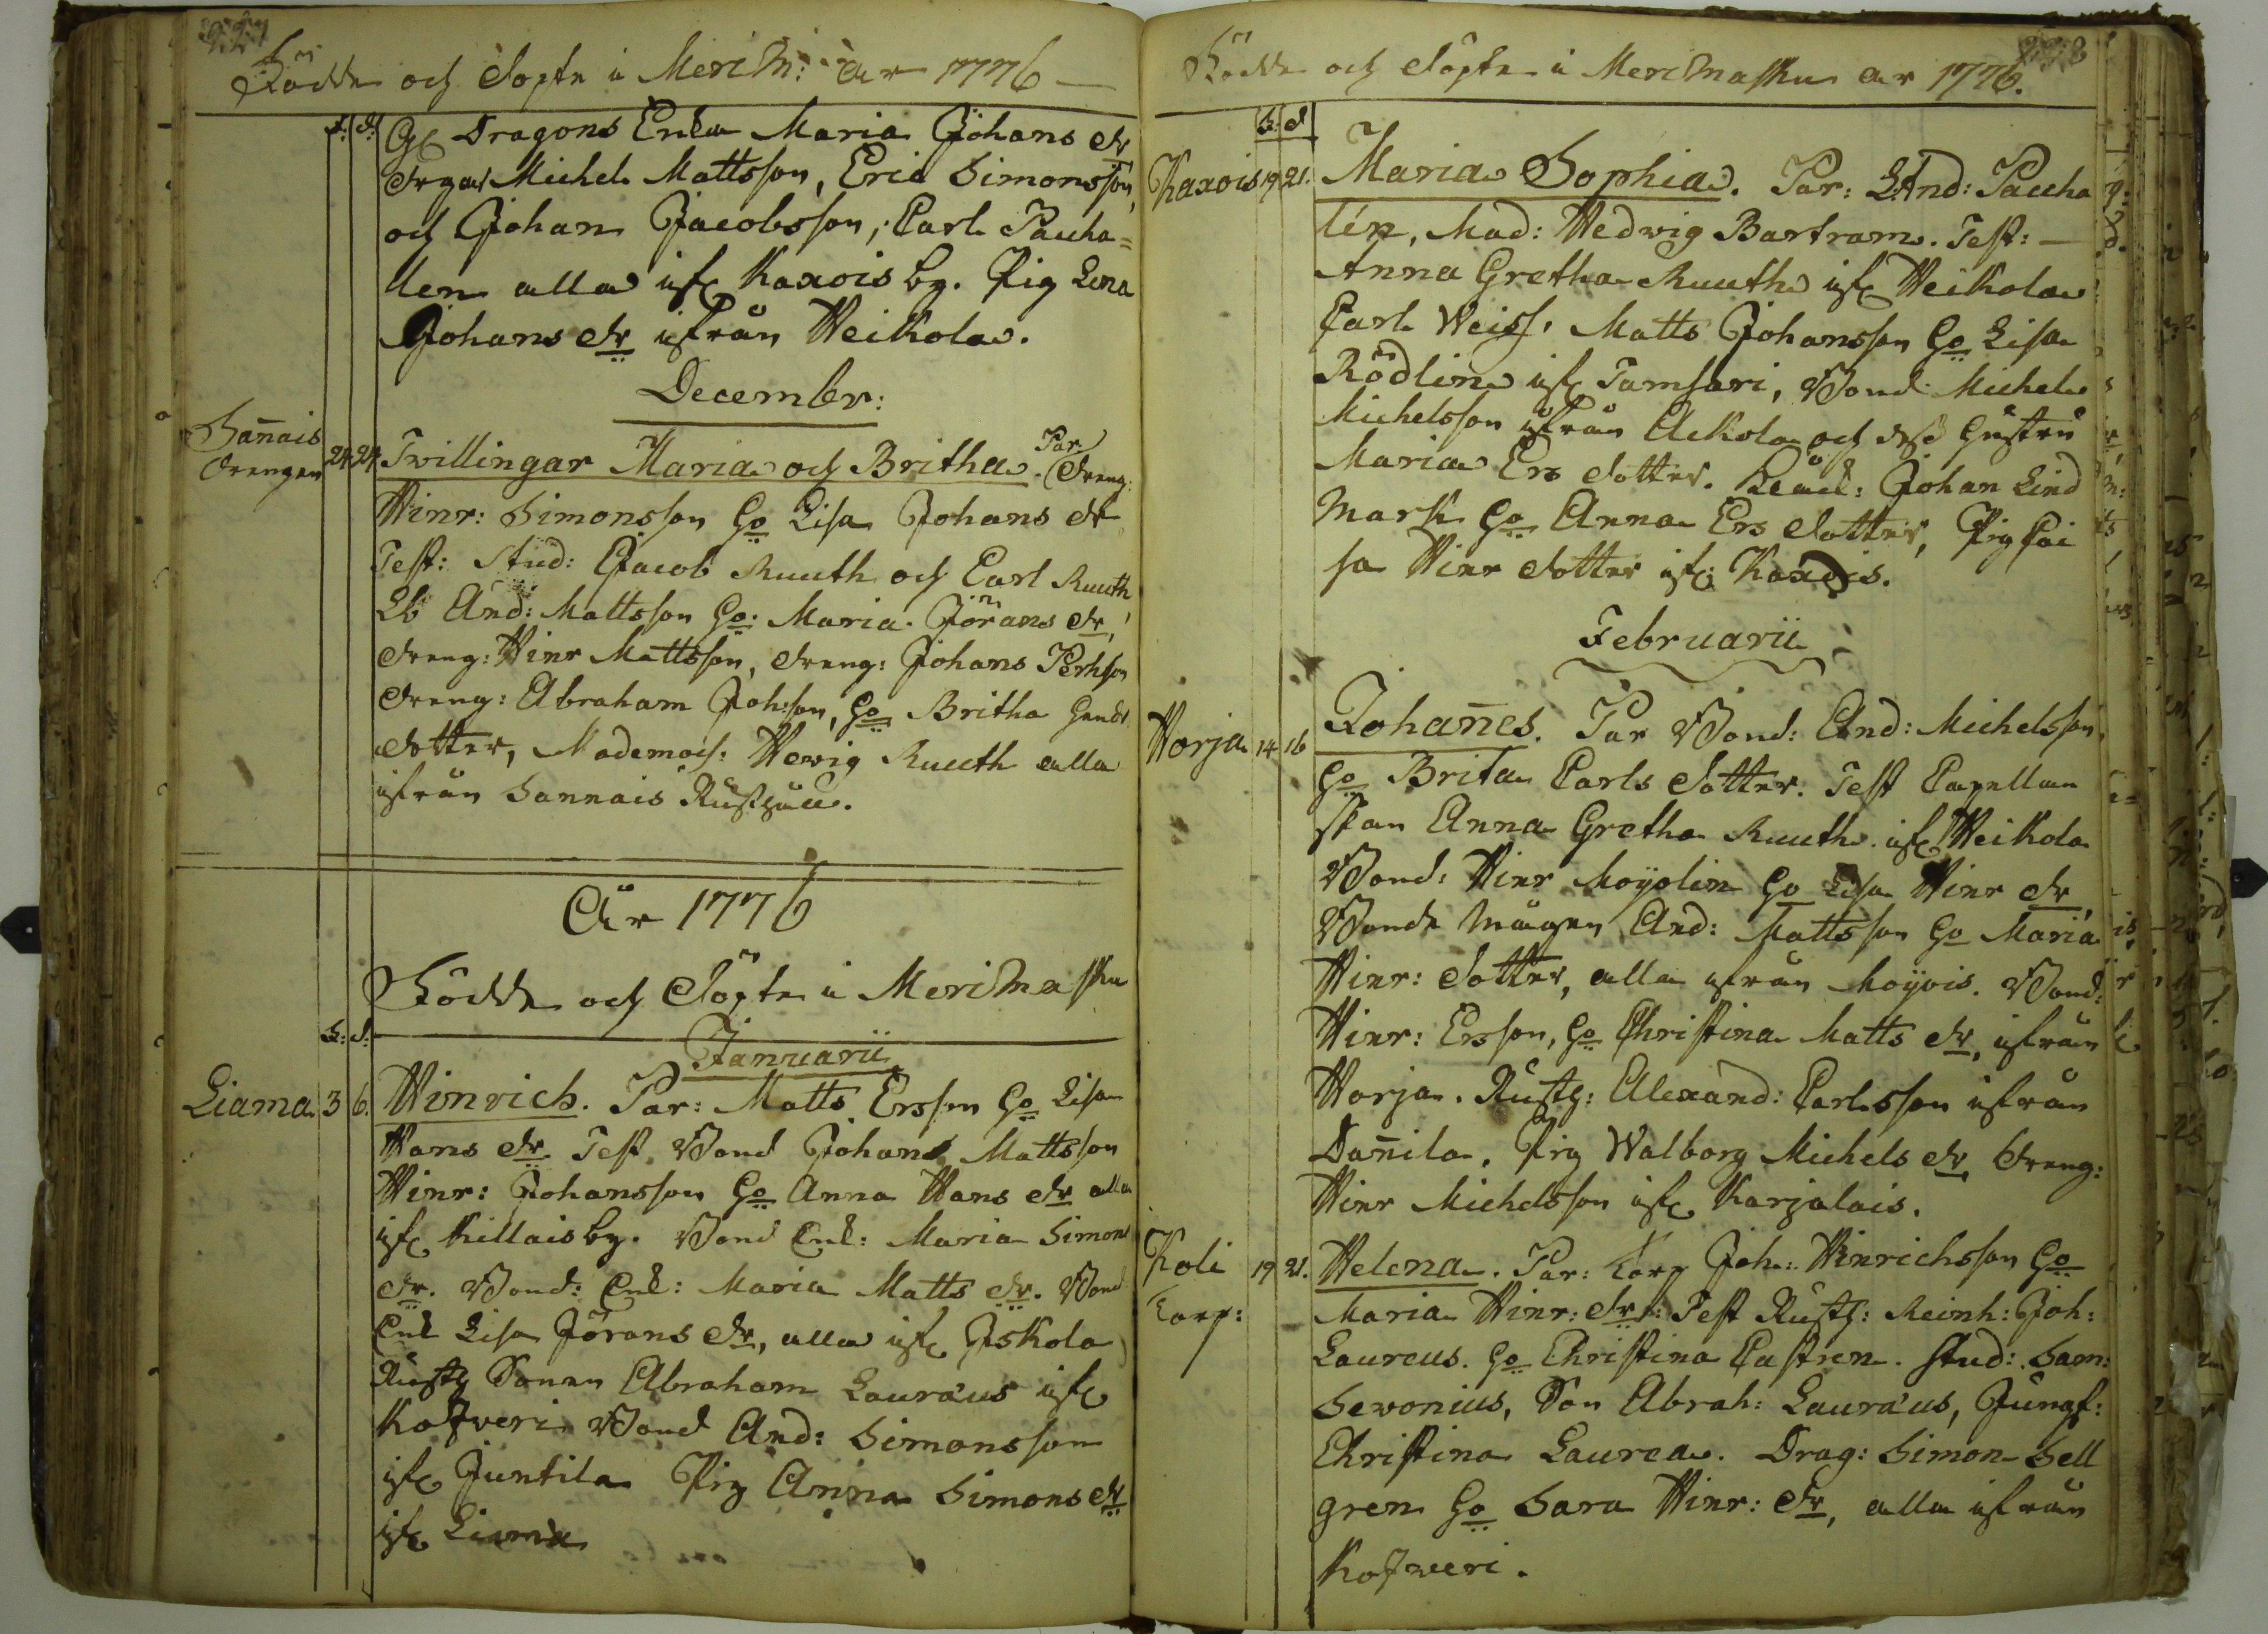 227
Födde och Döpte i Merim: år 1776
F: D:
Gl Dragons Enka Maria Johans dr
Drgar Michel Mattsson, Eric Simonsson,
och Johan Jacobsson, Carl Paucha=
len alla ifr Kaxois by. Pig Lena
Johans dr ifrån Heikola.
December:
Sañais Drengen 24 24 Twillingar Maria och Britha. Par Dreng:
Hinr: Simonsson Ho Lisa Johans dr
Test: Stud: Jacob Ruuth och Carl Ruuth
Lb And: Mattsson Ho: Maria Jörans dr,
dreng: Hinr Mattsson, dreng: Johans
dreng: Abraham Johsson, Ho Britha
dotter, Mademois: Hewig Ruuth alla
ifrån Sannais
År 1776
Födde och Döpte i Merimasku
F: D:
Januarii
Liama 3 6. Hinrich. Par: Matts Ersson Ho Lisa
Hans dr. Test. Bond Johans Mattsson
Hinr: Johansson Ho Anna Hans dr alla
ifr Killais by. Bond Enk: Maria Simons
dr. Bond: Enk: Maria Matts dr. Bond
Enk Lisa Jörans dr, alla ifr Iskola
Rustg Sonen Abraham Lauræus ifr
Kofweri Bond And: Simonsson
ifr Juntila Pig Anna Simons dr
ifr Liama
228
Födde och Döpte i Merimasku år 1776.
F: D
Kaxois 19 21. Maria Sophia. Par: And: Paucha
lén, Mad: Hedwig Bartram. Test:
Anna Gretha Ruuth ifr Heikola
Carl Weiss, Matts Johansson Ho Lisa
Rödlin ifr Tamsari, Bond Michel
Michelsson ifrån Ackola och dess Hustru
Maria Ers dotter. Johan Lind
mark Ho Anna Ers dotter, Pig Cai
sa Hinr dotter ifr Kaxois.
Februarii
Horja 14 16 Johañes. Par Bond: And: Michelsson
Ho Brita Carls dotter. Test Capellan
skan Anna Gretha Ruuth ifr Heikola
Bond: Hinr Moijolin Ho Lisa Hinr dr,
Bonde Mågen And: Mattsson Ho Maria
Hinr: dotter, alla ifrån Moijois. Bond:
Hinr: Ersson, Ho Christina Matts dr, ifrån
Horja. Rustg: Alexand: Carlsson ifrån
Dañila, Pig Walborg Michels dr, dreng:
Hinr Michelsson ifr Karjalais.
Koli Torp: 19 21. Helena. Par: Torp Joh: Hinrichsson Ho
Maria Hinr: dr: Test Rustg: Reinh: Joh:
Laureus. Ho Christina Castren. Stud: Sam:
Sevonius, Son Abrah: Lauræus, Jungf:
Christina Laurea. Drag: Simon Sell
gren Ho Sara Hinr: dr, alla ifrån
Kofweri.